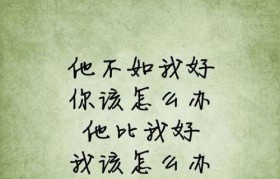 他不如我好
你该怎么办
他比我好
我该怎么办